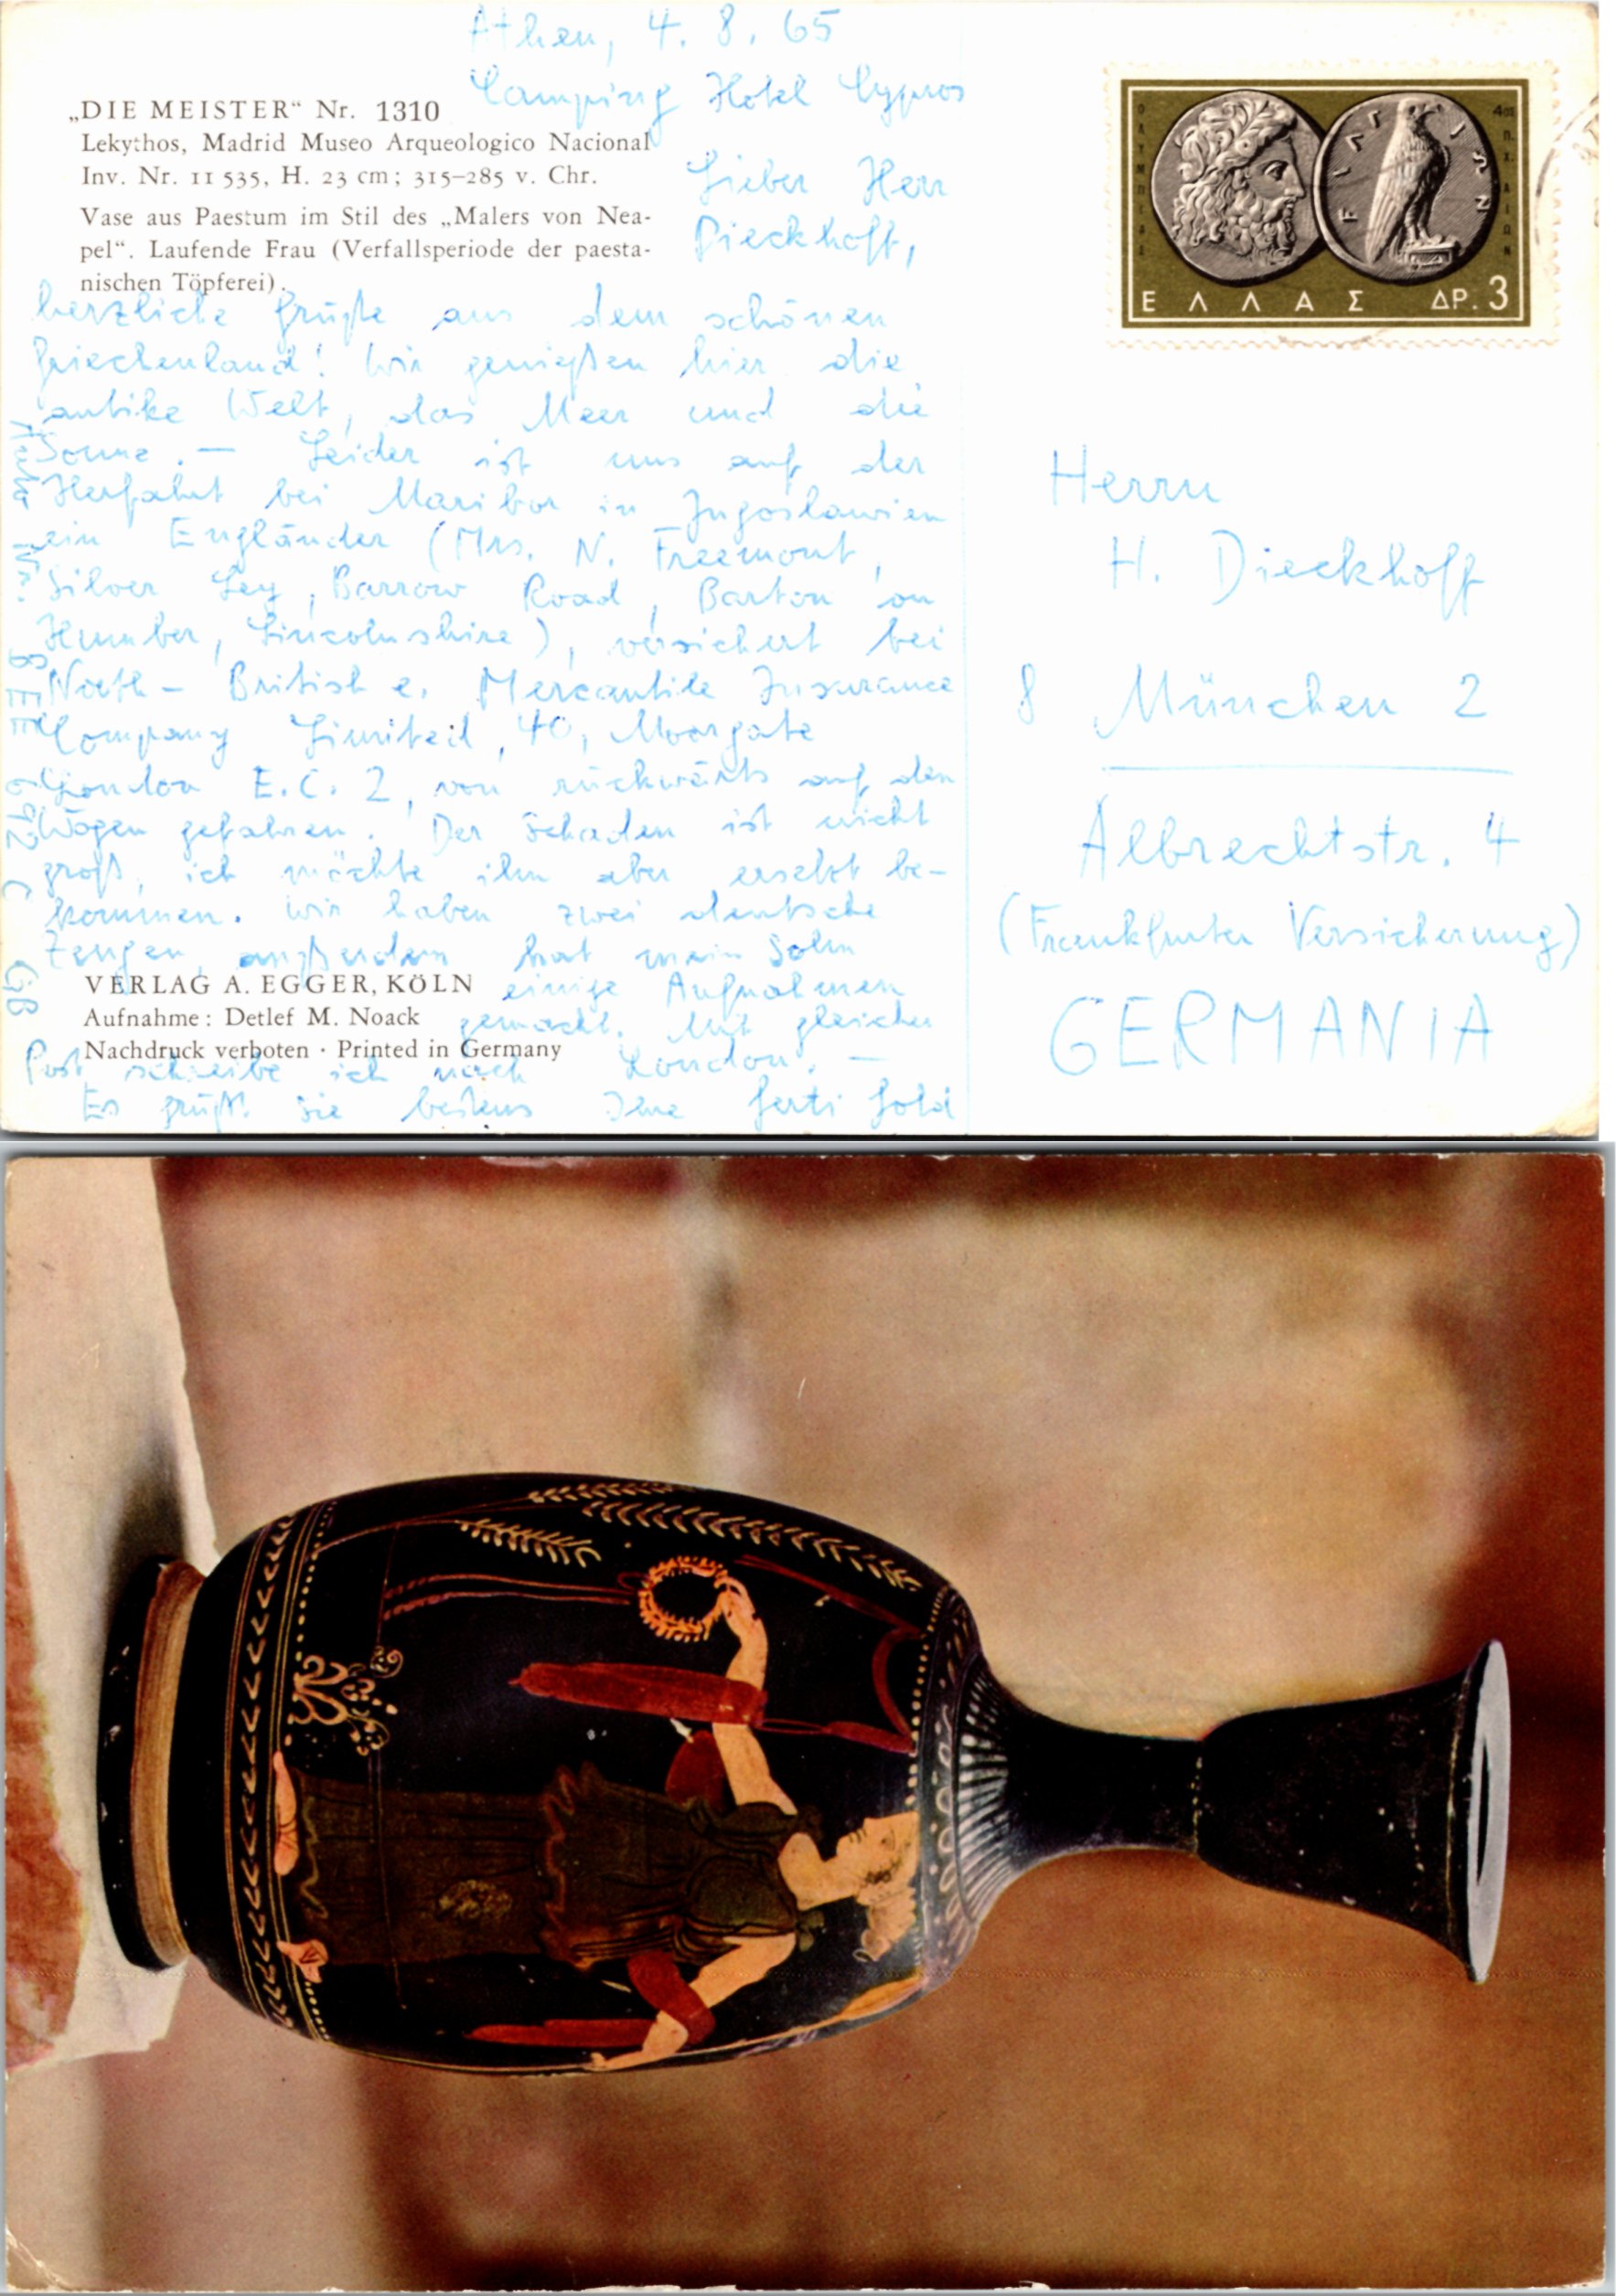 Athen, 4. 8. 65
Camping Hotel Cypros
„DIE MEISTER“ Nr. 1310
Lekythos, Madrid Museo Arqueologico Nacional
Inv. Nr. 11 535, H. 23 cm; 315–285 v. Chr.
Vase aus Paestum im Stil des „Malers von Nea-
pel“. Laufende Frau (Verfallsperiode der paesta-
nischen Töpferei).
Lieber Herr
Dieckhoff,
herzliche Grüße aus dem schönen
Griechenland! Wir genießen hier die
antike Welt, das Meer und die
Sonne. — Leider ist uns auf der
Herfahrt bei Maribor in Jugoslawien
ein Engländer (Mrs. N. Freemont,
Silver Ley, Barrow Road, Barton on
Humber, Lincolnshire), versichert bei
North - British e. Mercantile Insurance
Company Limited, 40, Moorgate
London E.C. 2, von rückwärts auf den
Wagen gefahren. Der Schaden ist nicht
groß, ich möchte ihn aber ersetzt be-
kommen. Wir haben zwei deutsche
Zeugen, außerdem hat mein Sohn
einige Aufnahmen
gemacht. Mit gleicher
Post schreibe ich nach London. —
Es grüßt Sie bestens Ihre Gerti Gold
Nr: 8 EE 092 C GB
VERLAG A. EGGER, KÖLN
Aufnahme: Detlef M. Noack
Nachdruck verboten · Printed in Germany
ΕΛΛΑΣ ΔΡ. 3
Herrn
H. Dieckhoff
8 München 2
Albrechtstr. 4
(Frankfurter Versicherung)
GERMANIA